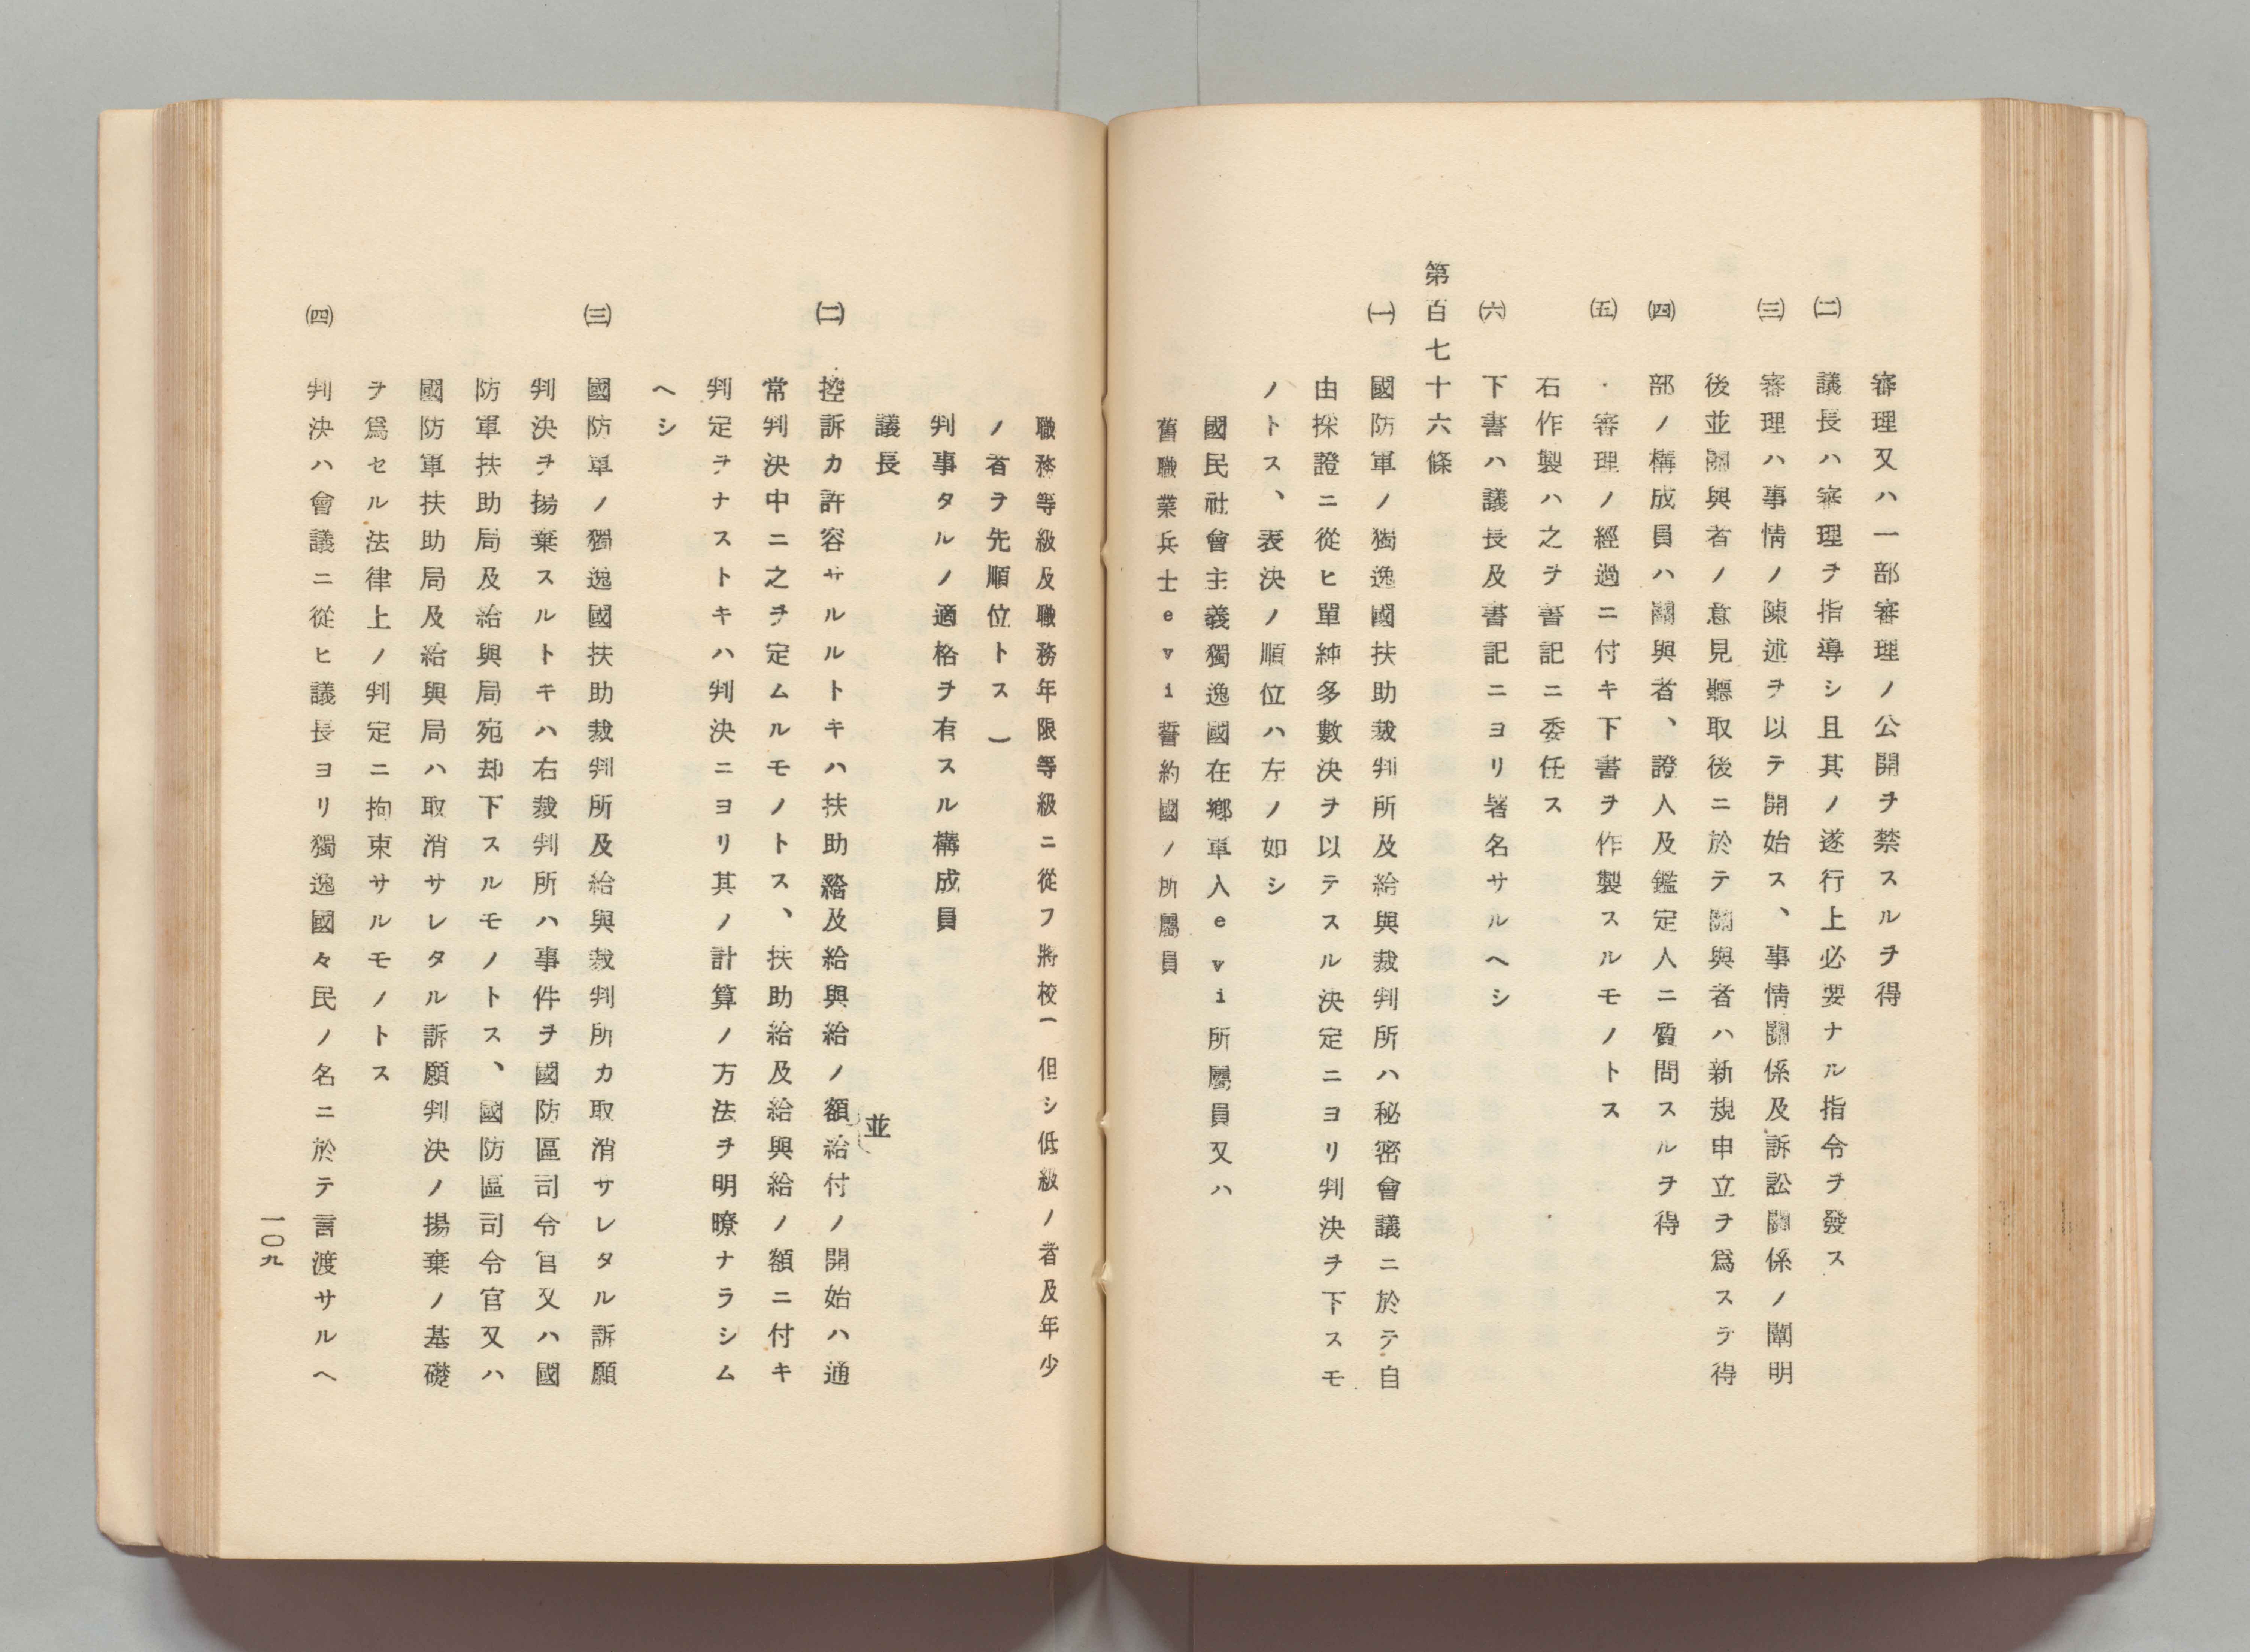 審理又ハ一部審理ノ公開ヲ禁スルヲ得
㈡　議長ハ審理ヲ指導シ且其ノ遂行上必要ナル指令ヲ發ス
㈢　審理ハ事情ノ陳述ヲ以テ開始ス、事情關係及訴訟關係ノ闡明
後並關與者ノ意見聽取後ニ於テ關與者ハ新規申立ヲ爲スヲ得
㈣　部ノ構成員ハ關與者、證人及鑑定人ニ質問スルヲ得
㈤　審理ノ經過ニ付キ下書ヲ作製スルモノトス
右作製ハ之ヲ書記ニ委任ス
㈥　下書ハ議長及書記ニヨリ署名サルヘシ
第百七十六條
㈠　國防軍ノ獨逸國扶助裁判所及給與裁判所ハ秘密會議ニ於テ自
由採證ニ從ヒ單純多數決ヲ以テスル決定ニヨリ判決ヲ下スモ
ノトス、表決ノ順位ハ左ノ如シ
國民社會主義獨逸國在鄕軍人ｅｖｉ所屬員又ハ
舊職業兵士ｅｖｉ誓約國ノ所屬員
職務等級及職務年限等級ニ從フ將校（但シ低級ノ者及年少
ノ者ヲ先順位トス）
判事タルノ適格ヲ有スル構成員
議長
㈡　控訴カ許容サルルトキハ扶助給及給與給ノ額並給付ノ開始ハ通
常判決中ニ之ヲ定ムルモノトス、扶助給及給與給ノ額ニ付キ
判定ヲナストキハ判決ニヨリ其ノ計算ノ方法ヲ明瞭ナラシム
ヘシ
㈢　國防軍ノ獨逸國扶助裁判所及給與裁判所カ取消サレタル訴願
判決ヲ揚棄スルトキハ右裁判所ハ事件ヲ國防區司令官又ハ國
防軍扶助局及給與局宛却下スルモノトス、國防區司令官又ハ
國防軍扶助局及給與局ハ取消サレタル訴願判決ノ揚棄ノ基礎
ヲ爲セル法律上ノ判定ニ拘束サルモノトス
㈣　判決ハ會議ニ從ヒ議長ヨリ獨逸國々民ノ名ニ於テ言渡サルヘ
一〇九